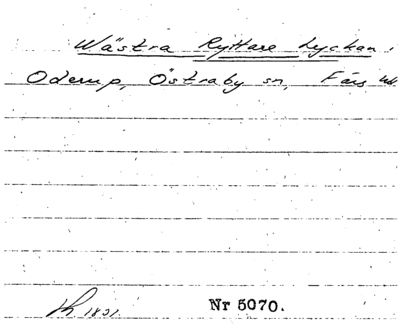 Wästra Ryttare Lyckan.
Oderup, Östraby sn, Färs
1831. Nr 5070.